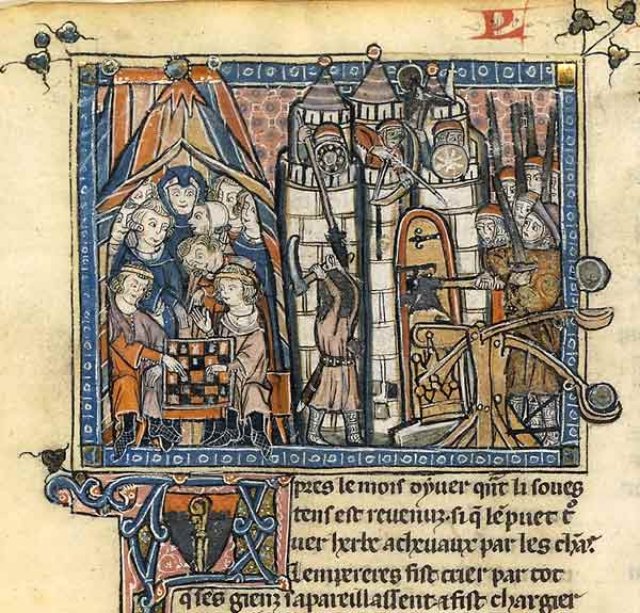 Apres le mois dyuer qñt li soues
tens est reuenuz. si q̃ lẽ puet t°
uer herbe a cheuaux par les chãs
Lempereres fist crier par tot
q̃ ses gienz sapareillassent ⁊ fist chargier